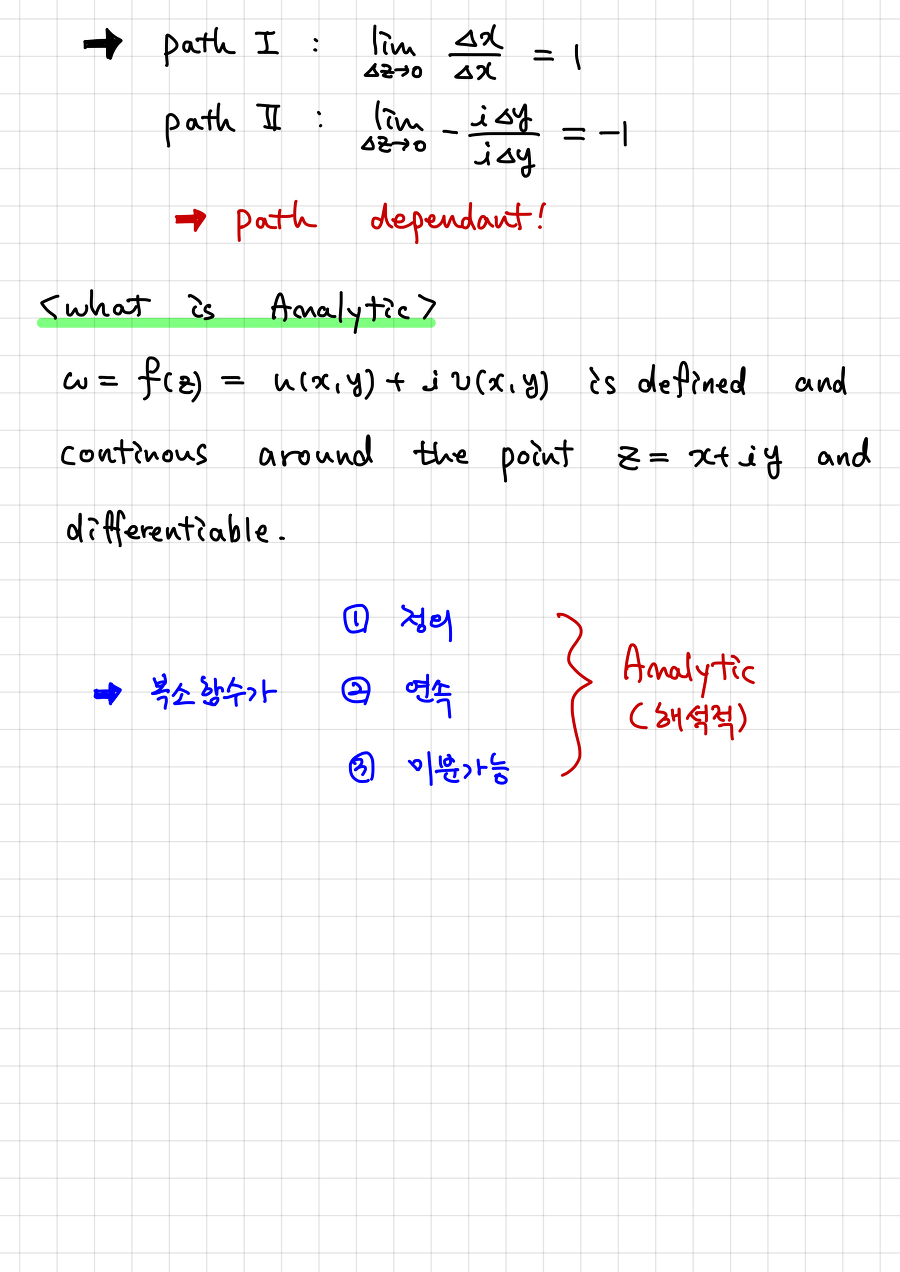 → path Ⅰ : lim Δz→0 Δx/Δx = 1
path Ⅱ : lim Δz→0 - iΔy/iΔy = -1
→ path dependant!
<what is Analytic>
ω = f(z) = u(x,y) + i v(x,y) is defined and
continous around the point z = x+iy and
differentiable.
① 정의
→ 복소함수가 ② 연속
③ 미분가능
Analytic
(해석적)